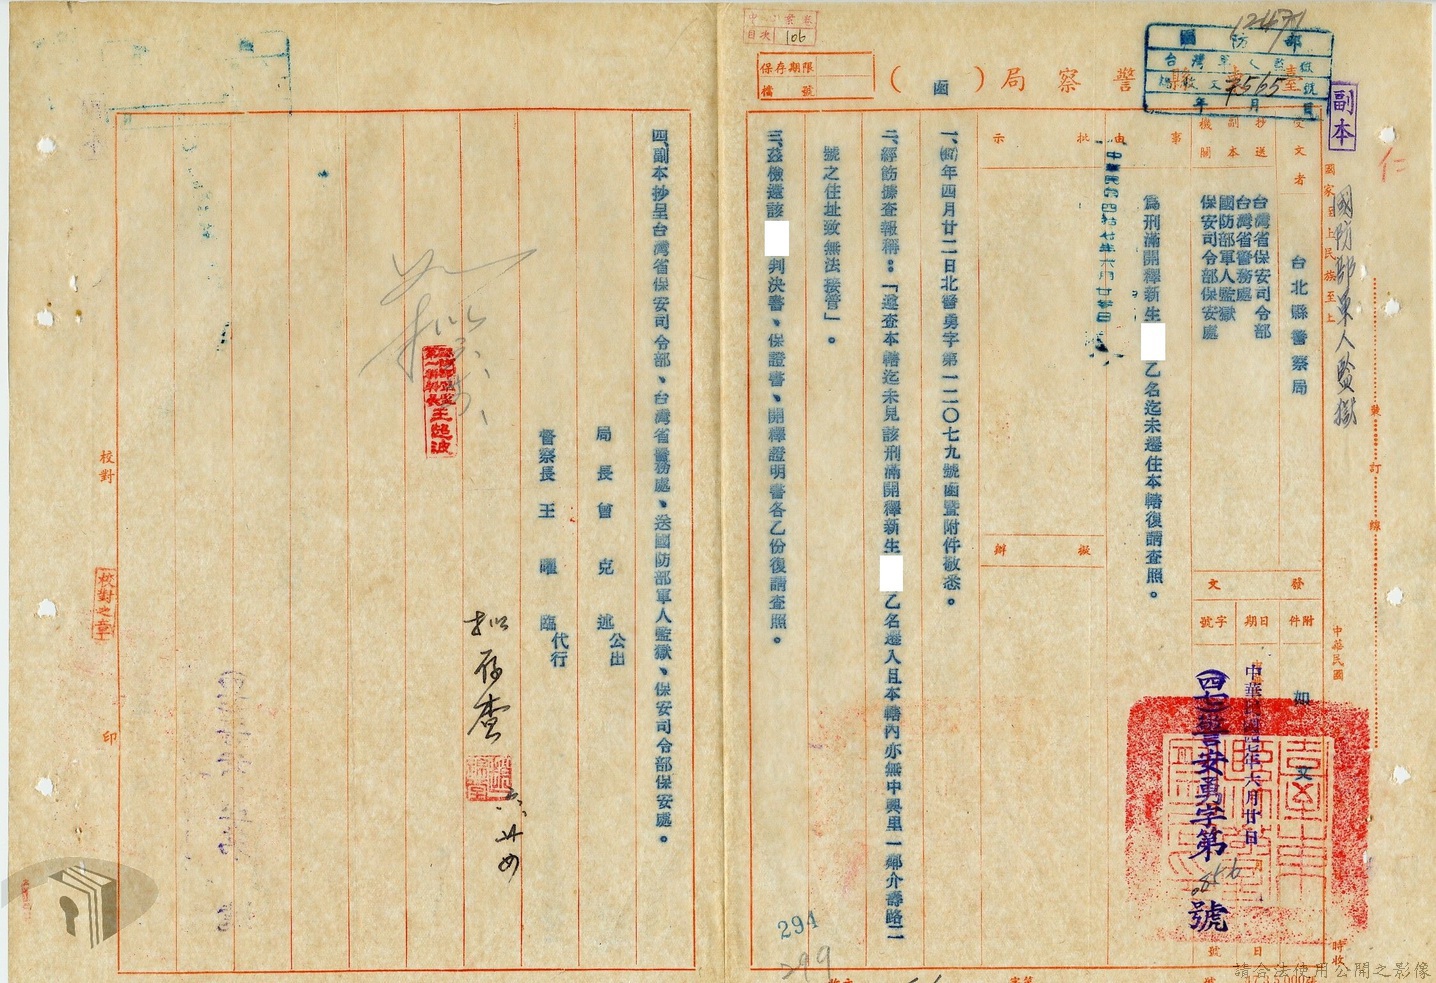 副本
國防部軍人監獄
國家至上民族至上
臺東縣警察局(函)
保存期限
檔號
目次 106
12471
國防部
7565
受文者
台北縣警察局
抄送副本機關
台灣省保安司令部
台灣省警務處
國防部軍人監獄
保安司令部保安處
發文
附件
如文
日期
中華民國四七年六月廿日
字號
(四七)警安勇字第
號
事由
為刑滿開釋新生 乙名迄未遷住本轄復請查照。
中華民國四拾七年六月廿
批示
擬辦
一、(47)年四月廿二日北警勇字第一二〇七九號函暨附件敬悉。
二、經飭據查報稱:「遵查本轄迄未見該刑滿開釋新生 乙名遷入且本轄內亦無中興里一鄰介壽路二
號之住址致無法接管」。
三、茲檢還該 判決書、保證書、開釋證明書各乙份復請查照。
四、副本抄呈台灣省保安司令部、台灣省警務處、送國防部軍人監獄、保安司令部保安處。
局長曾克述公出
督察長王曜臨代行
擬存查
王超波
校對
校對之章
印
裝訂線
中華民國
294
299
請合法使用公開之影像